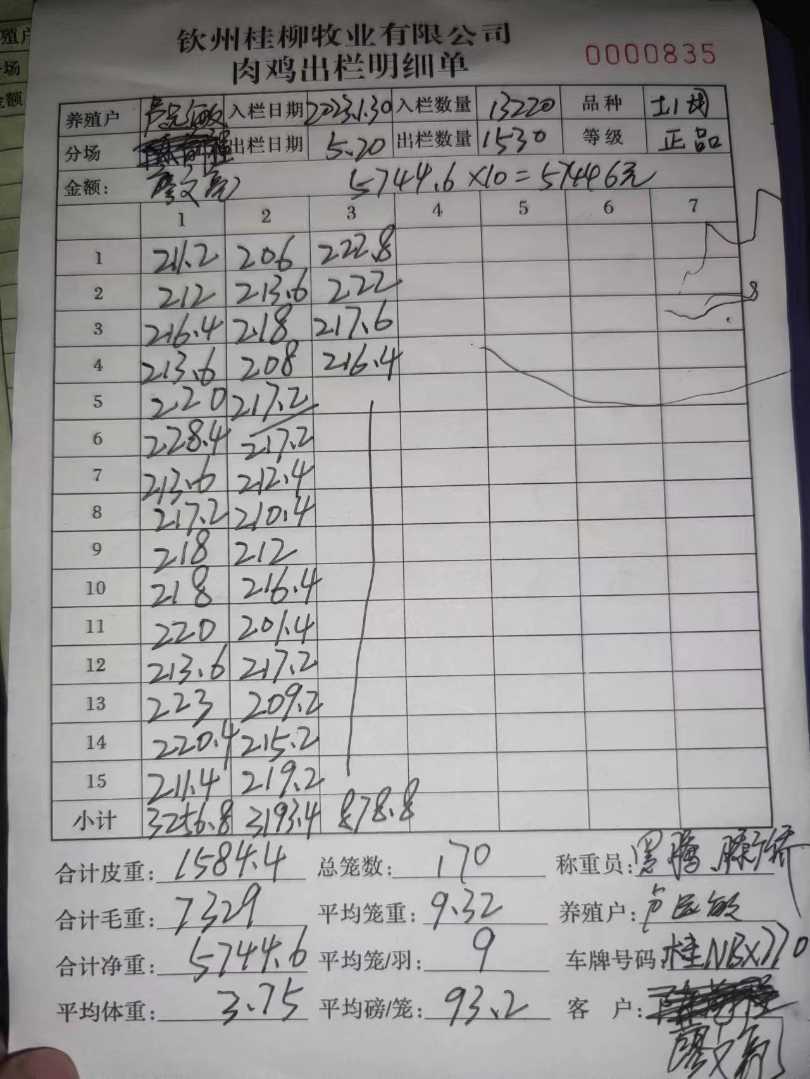 钦州桂柳牧业有限公司
肉鸡出栏明细单 0000835
养殖户 入栏日期 2023.1.30 入栏数量 13220 品种 土1
分场 出栏日期 5.20 出栏数量 1530 等级 正品
金额: 廖文 5744.6×10=57446元
1 2 3 4 5 6 7
1 211.2 206 222.8
2 212 213.6 222
3 216.4 218 217.6
4 213.6 208 216.4
5 220 217.2
6 228.4 217.2
7 213.6 212.4
8 217.2 210.4
9 218 212
10 218 216.4
11 220 201.4
12 213.6 217.2
13 223 209.2
14 220.4 215.2
15 211.4 219.2
小计 3256.8 3193.4 878.8
合计皮重: 1584.4 总笼数: 170 称重员:
合计毛重: 7329 平均笼重: 9.32 养殖户:
合计净重: 5744.6 平均笼/羽: 9 车牌号码: 桂NBX770
平均体重: 3.75 平均磅/笼: 93.2 客户:
廖文